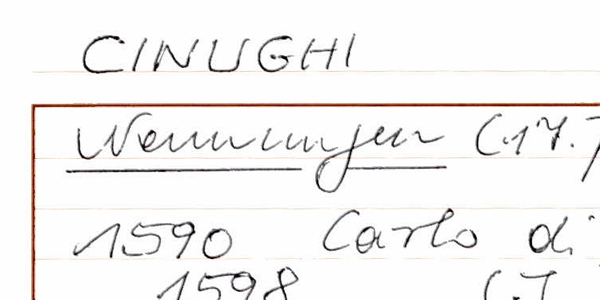 CINUGHI
Nennungen (17.)
1590 Carlo di
1598 (I